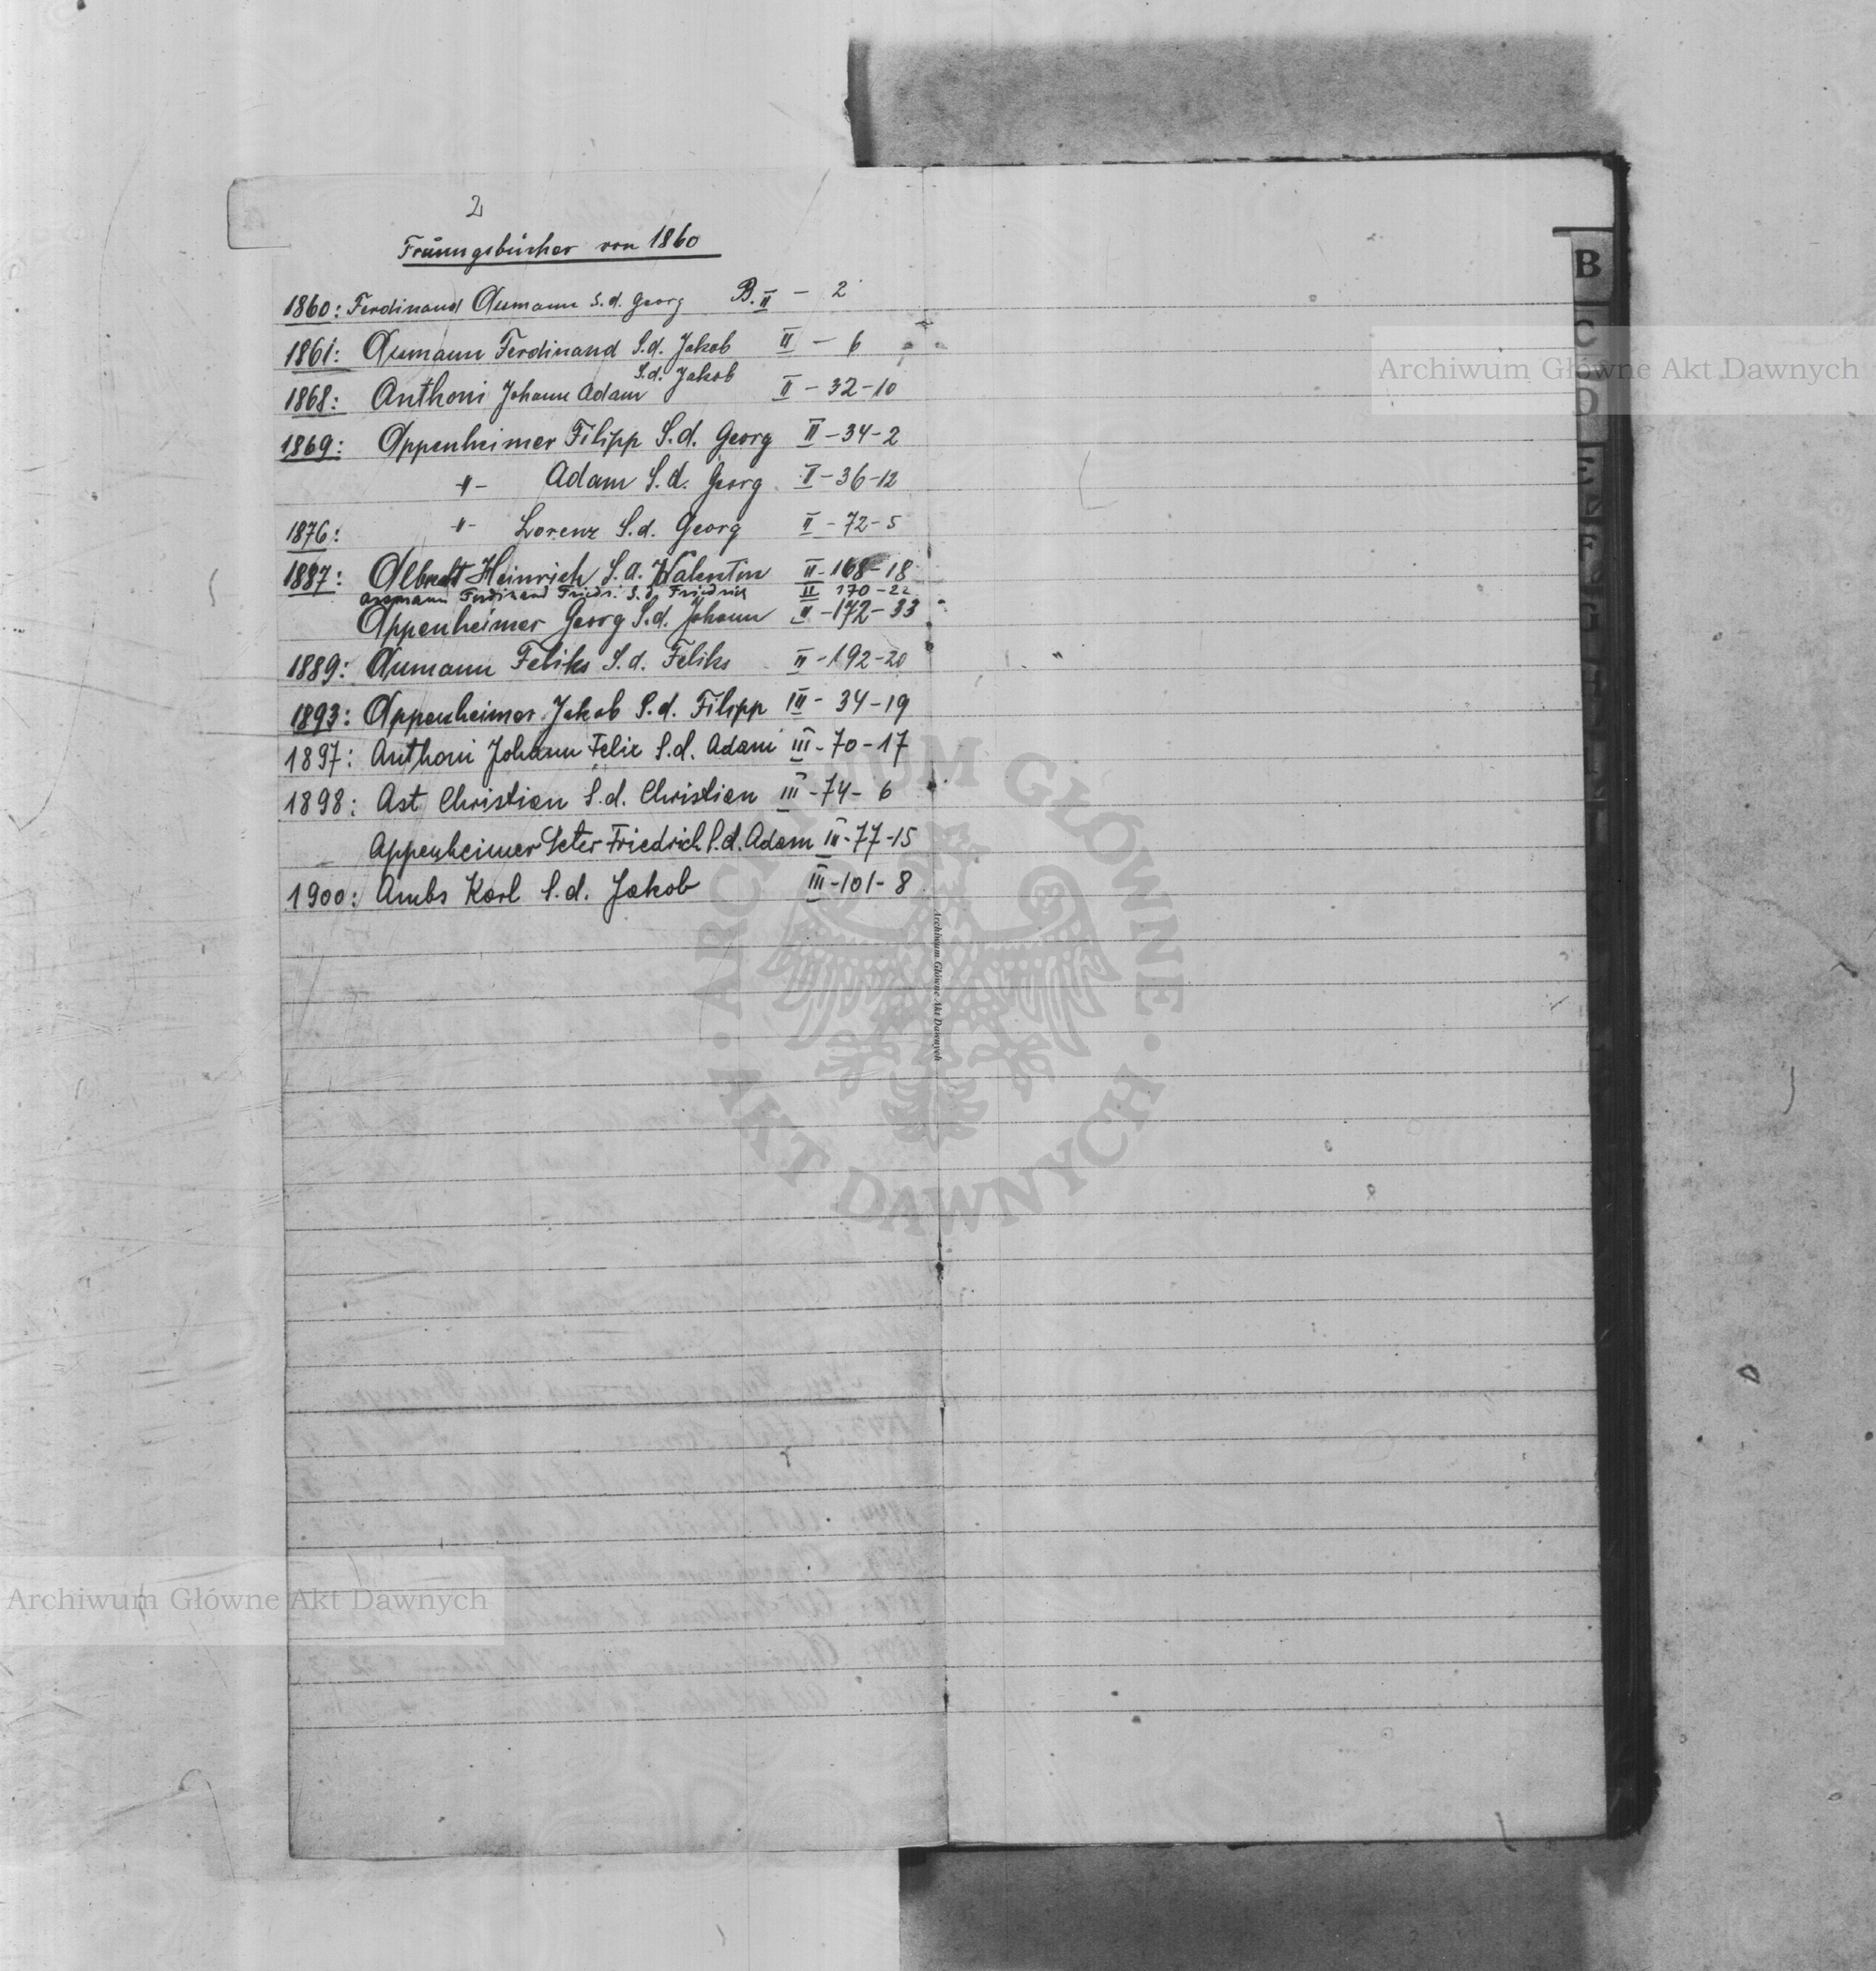 2
Trauungsbücher von 1860
1860: Ferdinand Aumann S.d. Georg B. II - 2
1861: Aumann Ferdinand S.d. Jakob II - 6
1868: Anthoni Johann Adam S.d. Jakob II - 32-10
1869: Appenheimer Filipp S.d. Georg II - 34-2
-"- Adam S.d. Georg II - 36-12
1876: -"- Lorenz S.d. Georg II - 72-5
1887: Albrecht Heinrich S.d. Valentin II - 168-18
Assmann Ferdinand Friedr. S.d. Friedrich II 170-22
Appenheimer Georg S.d. Johann II - 172-33
1889: Aumann Feliks S.d. Feliks II - 192-20
1893: Appenheimer Jakob S.d. Filipp III - 34-19
1897: Anthoni Johann Felix S.d. Adam III - 70-17
1898: Ast Christian S.d. Christian III - 74- 6
Appenheimer Peter Friedrich S.d. Adam III - 77-15
1900: Ambs Karl S.d. Jakob III - 101- 8
B
C
D
E
F
G
H
Archiwum Główne Akt Dawnych
ARCHIWUM GŁÓWNE · AKT DAWNYCH ·
Archiwum Główne Akt Dawnych
Archiwum Główne Akt Dawnych